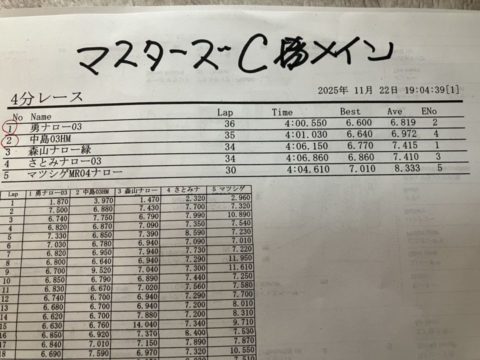 マスターズC勝メイン
2025年 11月 22日 19:04:39[1]
4分レース
No Name Lap Time Best Ave ENo
1 勇ナロー03 36 4:00.550 6.600 6.819 2
2 中島03HM 35 4:01.030 6.640 6.972 4
3 森山ナロー緑 34 4:06.150 6.770 7.415 1
4 さとみナロー03 34 4:06.860 6.860 7.410 3
5 マツシゲMR04ナロー 30 4:04.610 7.010 8.333 5
Lap 1 勇ナロー03 2 中島03HM 3 森山ナロー 4 さとみナ 5 マツシゲ
1 1.870 3.970 1.470 2.320 2.960
2 7.500 6.880 7.430 7.700 7.320
3 6.740 7.750 6.790 7.990 10.890
4 6.820 6.870 6.090 7.350 7.540
5 7.330 6.850 7.390 8.590 7.230
6 7.030 6.780 6.940 7.090 7.010
7 6.820 6.950 6.940 7.290 7.220
8 6.800 6.640 6.940 7.290 11.950
9 6.700 9.520 7.040 7.300 11.610
10 6.850 6.790 6.890 7.440 7.250
11 6.830 6.670 7.020 7.560 7.580
12 6.740 6.700 6.940 7.290 7.700
13 6.680 6.700 6.940 7.200 8.010
14 6.700 6.620 6.940 7.200 8.310
15 6.630 6.760 14.040 7.340 9.710
16 6.850 6.920 7.370 8.400 7.530
17 6.840 7.010 7.150 7.880 7.870
18 6.690 7.590 6.970 7.320 10.550